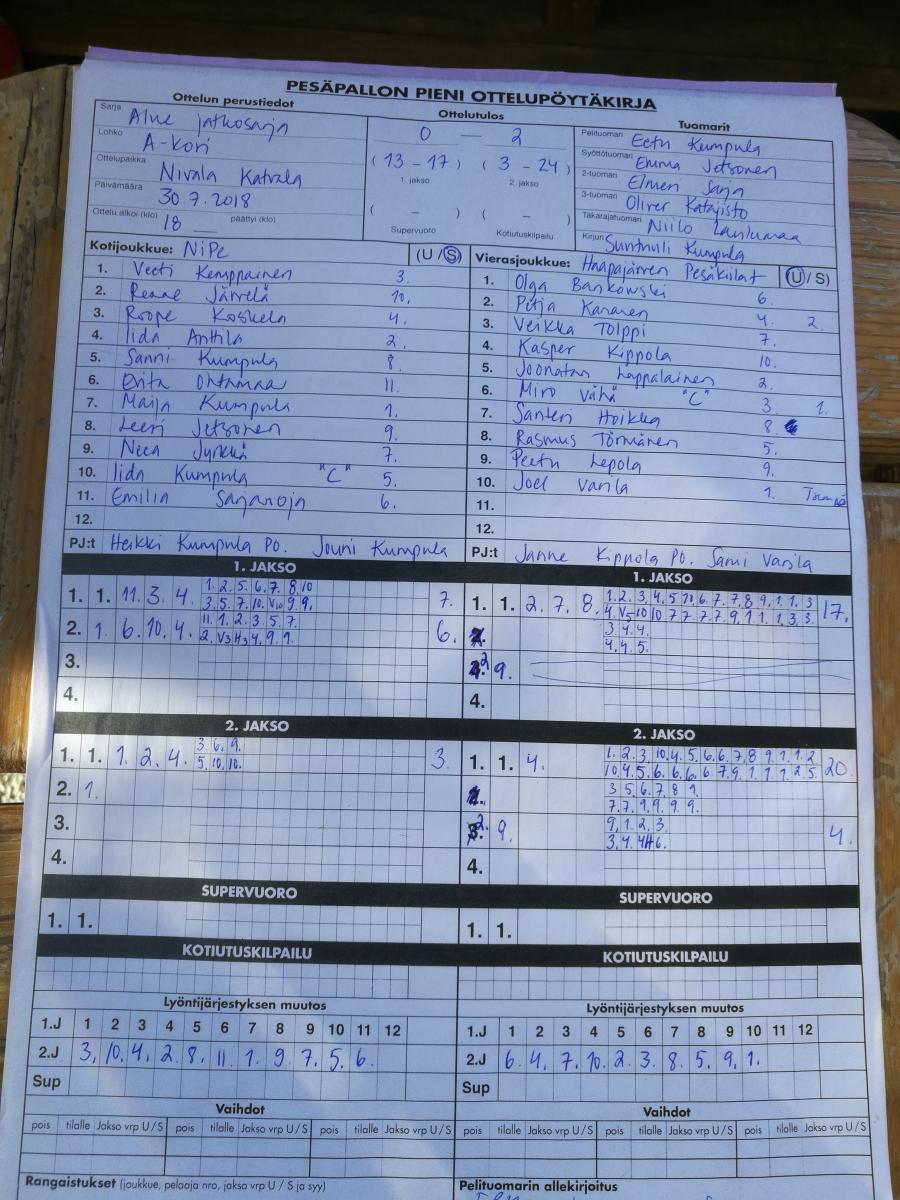 PESÄPALLON PIENI OTTELUPÖYTÄKIRJA
Ottelun perustiedot
Sarja Alue jatkosarja
Lohko A-Kori
Ottelupaikka Nivala Katvala
Päivämäärä 30.7.2018
Ottelu alkoi (klo) 18 päättyi (klo)
Ottelutulos
0 — 2
( 13 - 17 ) ( 3 - 24 )
1. jakso 2. jakso
( - ) ( - )
Supervuoro Kotiutuskilpailu
Tuomarit
Pelituomari Eetu Kumpula
Syöttötuomari Emma Jetsonen
2-tuomari Elmeri Sarja
3-tuomari Oliver Katajisto
Takarajatuomari Niilo
Kirjuri Kumpula
Kotijoukkue: NiPe (U / S)
1. Veeti Kemppainen 3.
2. Järvelä 10.
3. Roope Koskela 4.
4. Iida Anttila 2.
5. Sanni Kumpula 8.
6. 11.
7. Maija Kumpula 1.
8. Leevi Jetsonen 9.
9. Neea Jyrkkä 7.
10. Iida Kumpula "C" 5.
11. Emilia Sarjanoja 6.
12.
PJ:t Heikki Kumpula PO. Jouni Kumpula
Vierasjoukkue: Haapajärven Pesäkiilat (U / S)
1. Olga Bankowski 6.
2. Petja Kananen 4. 2.
3. Veikka Tolppi 7.
4. Kasper Kippola 10.
5. Joonatan Lappalainen 2.
6. Miro Vähä "C" 3. 1.
7. Santeri Hoikka 8
8. Rasmus Törmänen 5.
9. Peetu Lepola 9.
10. Joel Varila 1.
11.
12.
PJ:t Janne Kippola PO. Sami Varila
1. JAKSO
1. 1. 11. 3. 4. 1. 2. 5. 6. 7. 8. 10 7.
3. 5. 7. 10. V10 9. 9.
2. 1. 6. 10. 4. 11. 1. 2. 3. 5. 7. 6.
2. V3 H3 4. 9. 9.
3.
4.
1. JAKSO
1. 1. 2. 7. 8. 1. 2. 3. 4. 5 10. 6. 7. 7. 8 9. 1. 1. 3 17.
4. V5 10 10 7 7 7. 7. 9. 1. 1. 1. 3. 3.
3 4. 4.
4. 4. 5.
2 9.
4.
2. JAKSO
1. 1. 1. 2. 4. 3. 6. 9. 3.
5. 10. 10.
2. 1.
3.
4.
2. JAKSO
1. 1. 4. 1. 2. 3. 10. 4. 5. 6. 6. 7. 8 9. 1. 1. 2 20.
10. 4. 5. 6. 6. 6. 6. 7. 9. 1. 1. 1. 2. 5.
3 5. 6. 7. 8 9.
7. 7. 9. 9. 9. 9.
2. 9. 9. 1. 2. 3. 4.
3. 4. 4H6.
4.
SUPERVUORO
1. 1.
SUPERVUORO
1. 1.
KOTIUTUSKILPAILU
KOTIUTUSKILPAILU
Lyöntijärjestyksen muutos
1.J 1 2 3 4 5 6 7 8 9 10 11 12
2.J 3. 10. 4. 2. 8. 11. 1. 9. 7. 5. 6.
Sup
Lyöntijärjestyksen muutos
1.J 1 2 3 4 5 6 7 8 9 10 11 12
2.J 6. 4. 7. 10. 2. 3. 8. 5. 9. 1.
Sup
Vaihdot
pois tilalle Jakso vrp U / S pois tilalle Jakso vrp U / S pois tilalle Jakso vrp U / S
Vaihdot
pois tilalle Jakso vrp U / S pois tilalle Jakso vrp U / S pois tilalle Jakso vrp U / S
Rangaistukset (joukkue, pelaaja nro, jakso vrp U / S ja syy)
Pelituomarin allekirjoitus